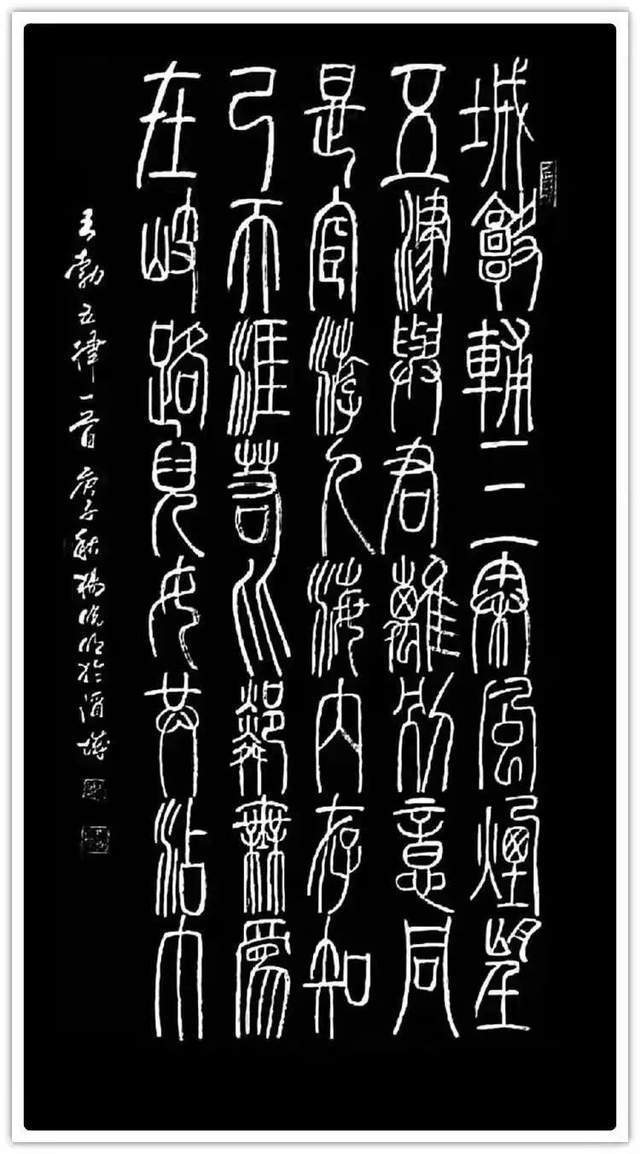 城闕輔三秦風煙望
五津與君離別意同
是宦游人海内存知
己天涯若比鄰無爲
在岐路兒女共沾巾
王勃五律一首庚子秋楊於